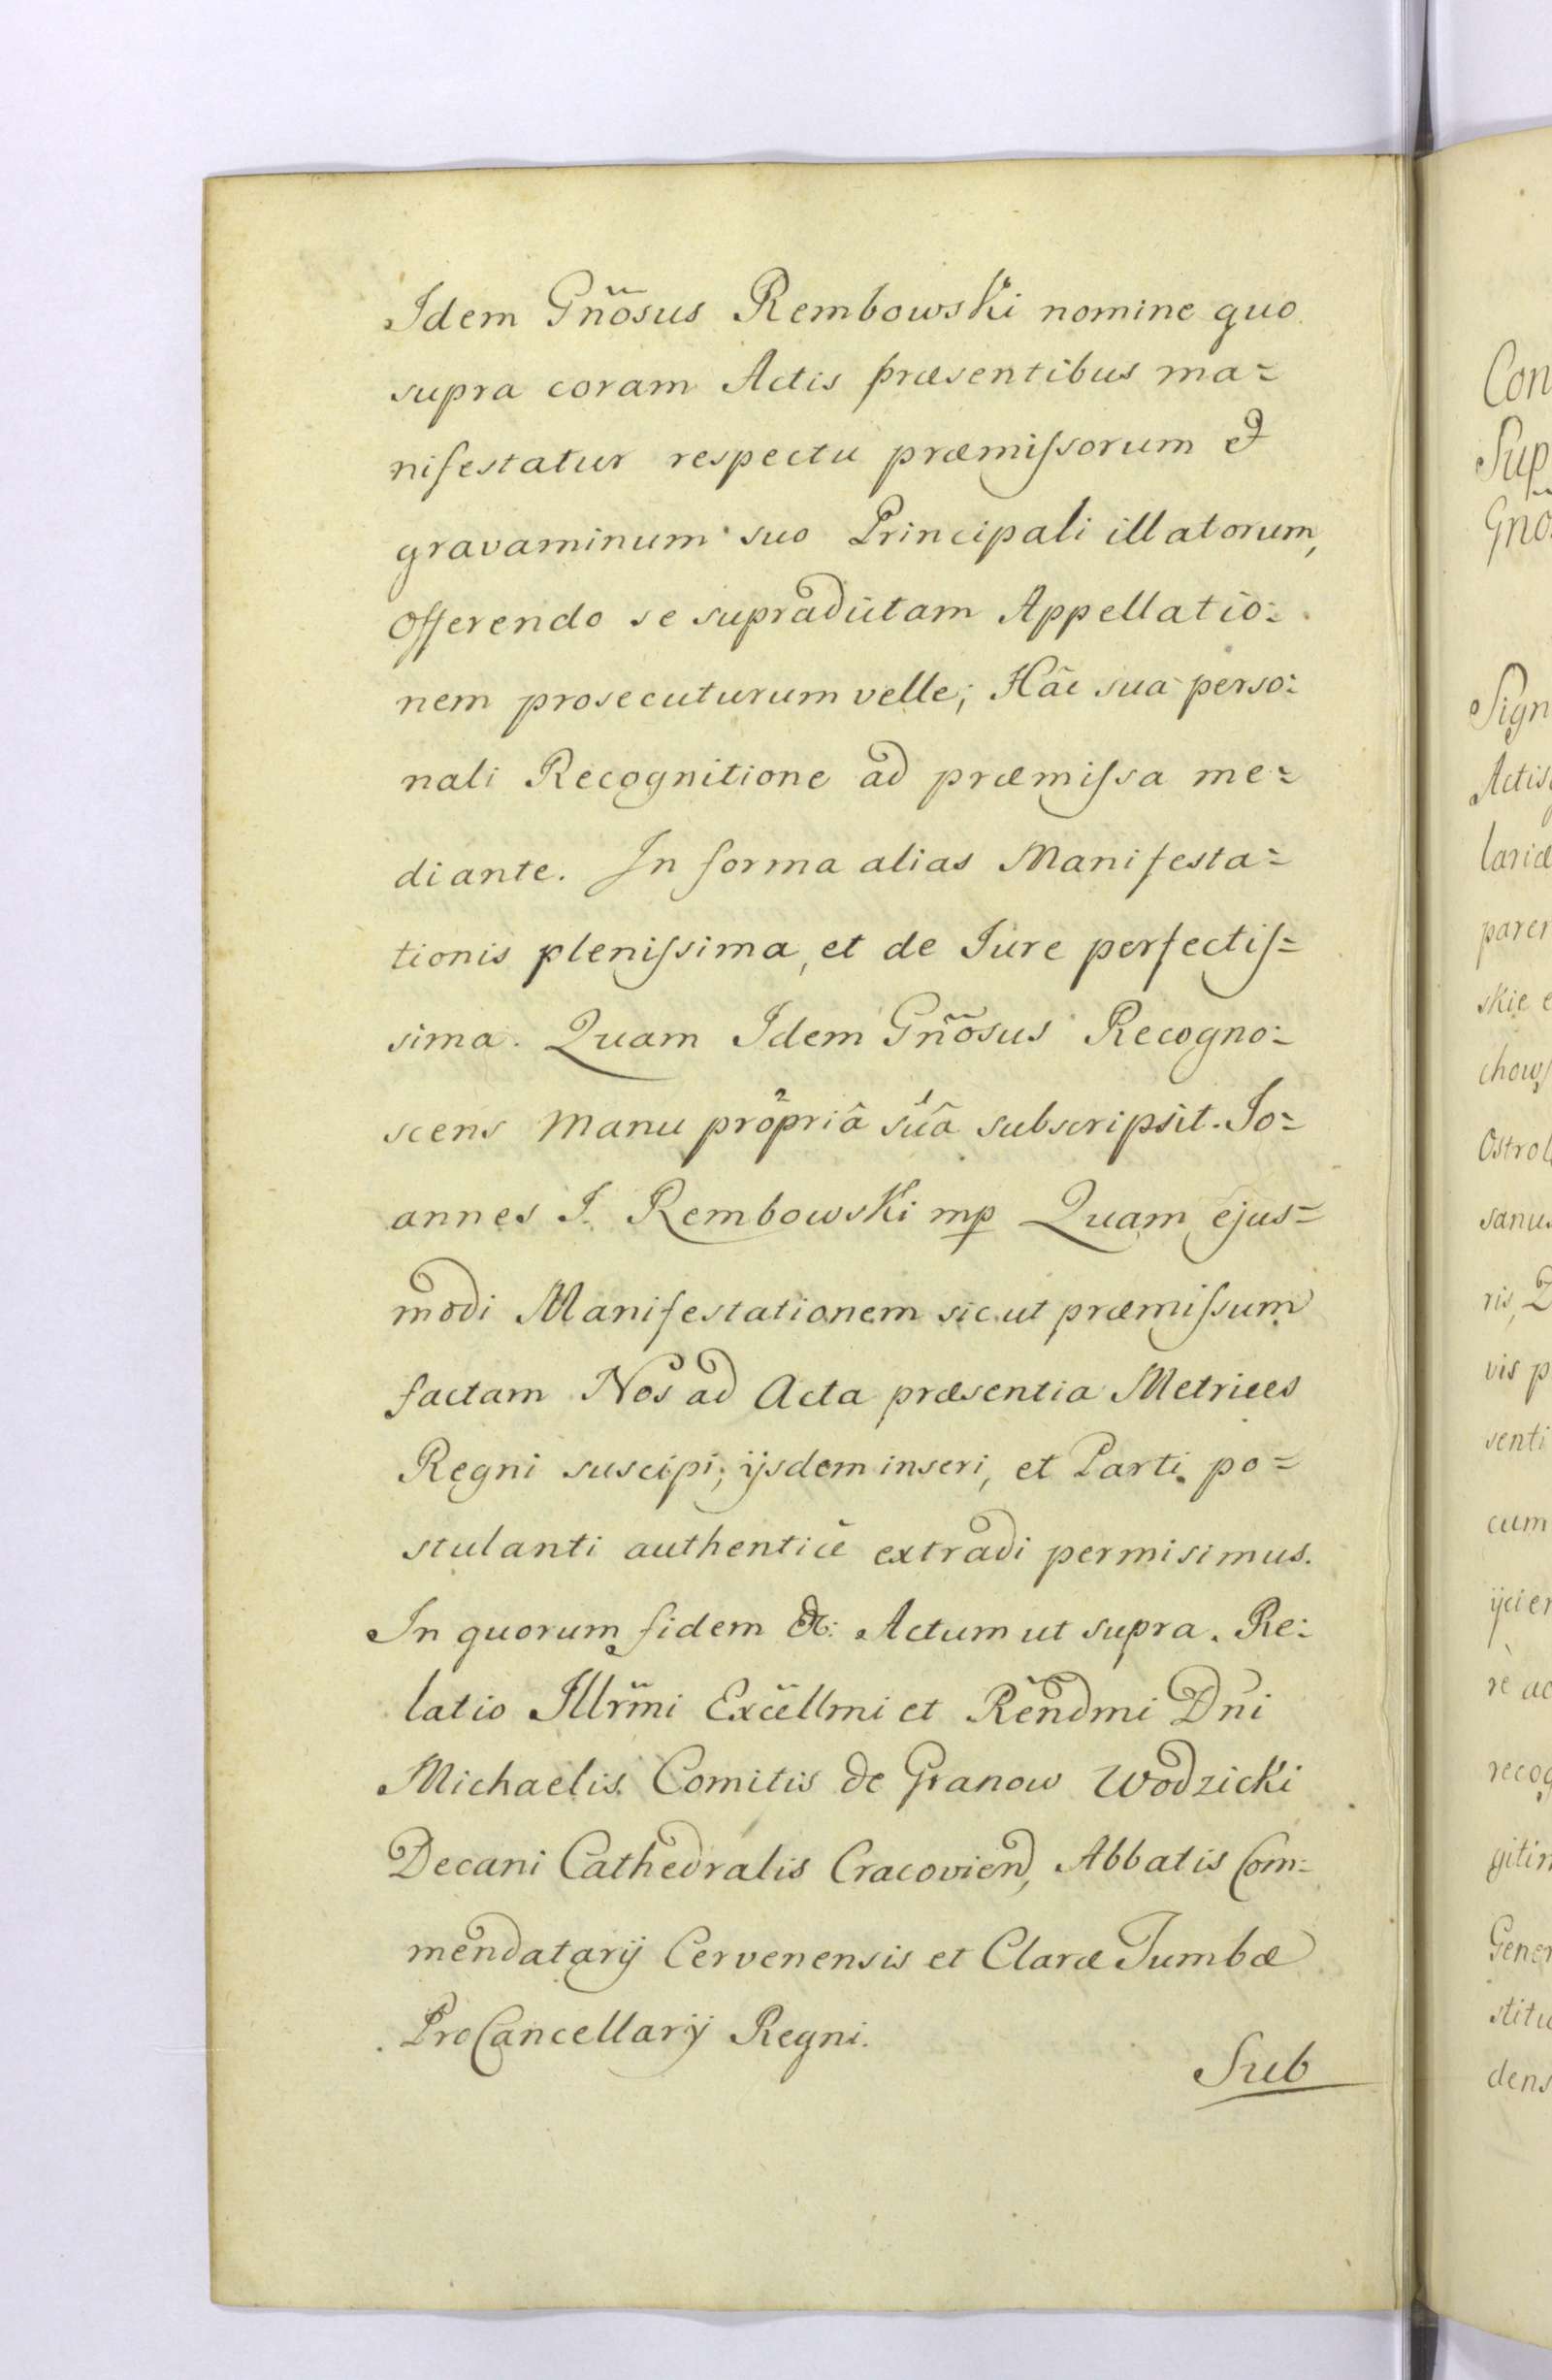 Idem Gñosus Rembowski nomine quo
supra coram Actis præsentibus ma=
nifestatur respectu præmiſsorum et
gravaminum suo Principali illatorum,
offerendo se supradictam Appellatio=
nem prosecuturum velle; Hâc sua perso=
nali Recognitione ad præmiſsa me=
diante. In forma alias Manifesta=
tionis pleniſsima, et de Iure perfectiſ=
sima. Quam Idem Gñosus Recogno=
scens manu propriâ suâ subscripsit. Jo=
annes J. Rembowski mp Quam ejus=
modi Manifestationem sicut præmiſsum
factam Nos ad Acta præsentia Metrices
Regni suscipi, ijsdem inseri, et Parti po=
stulanti authenticè extradi permisimus.
In quorum fidem &c: Actum ut supra. Re=
latio Illr̃mi Excellmi et Rẽndmi Dñi
Michaelis Comitis de Granow Wodzicki
Decani Cathedralis Cracovien, Abbatis Com=
mendatarij Cervenensis et Claræ Tumbæ
ProCancellarij Regni.
Sub
Con
Sup
Gño
Sign
Actis
lariæ
paren
skie e
chows
Ostrol
sanus
ris, 
vis p
senti
cum
ijcien
rè ac
recog
gitim
Gener
stitu
dens